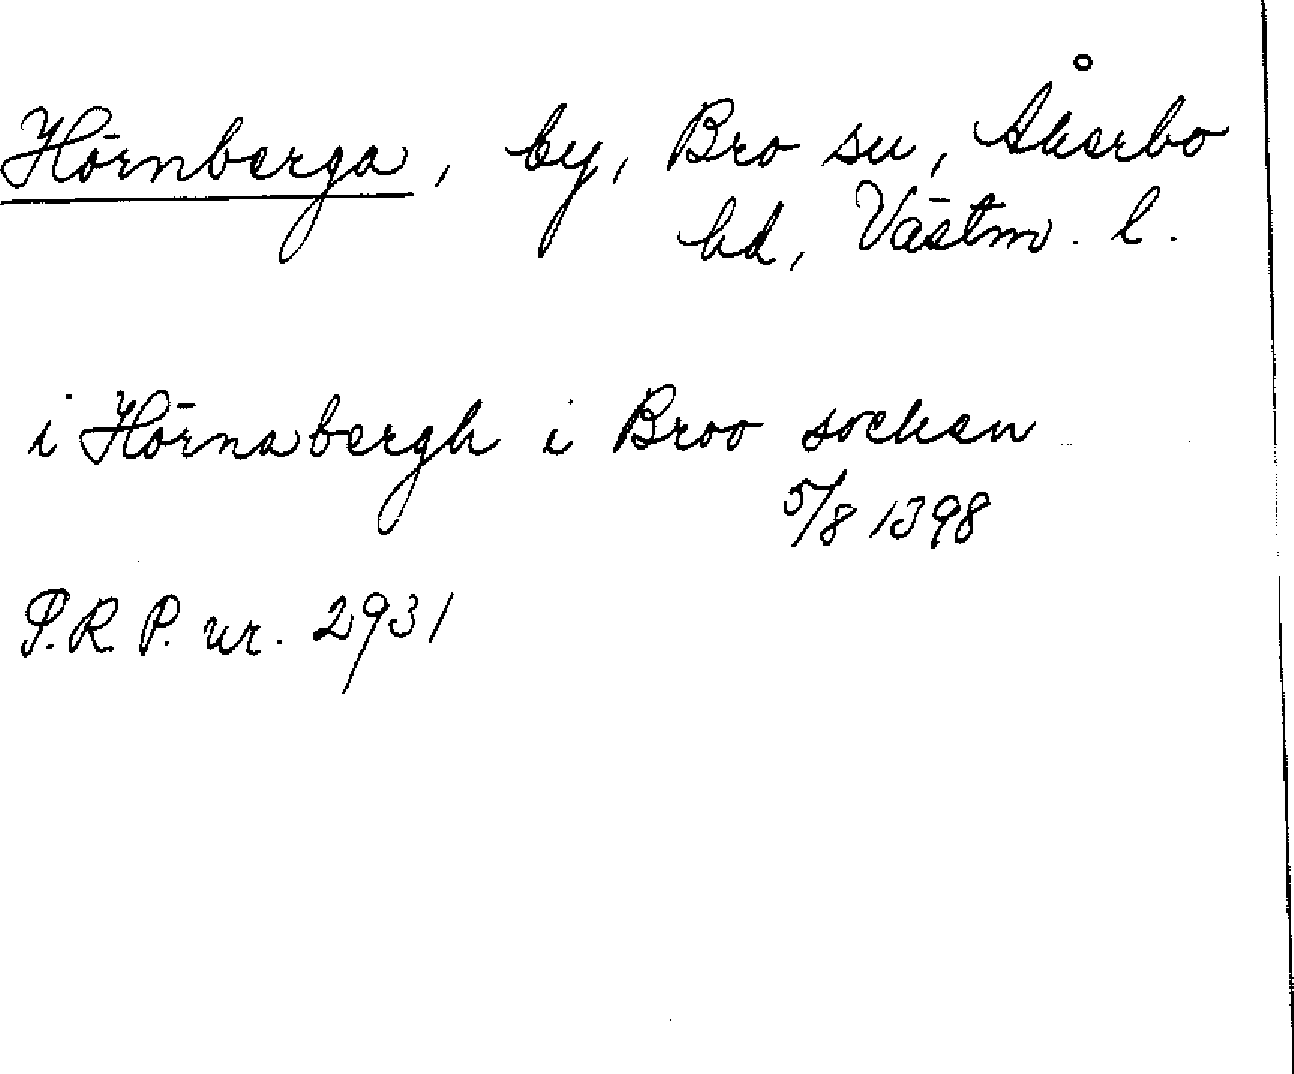 Hörnberga, by, Bro sn, Åkerbo
hd, Västm. l.
i Hörnabergh i Broo socken
5/8 1398
S.R.P. nr. 2931